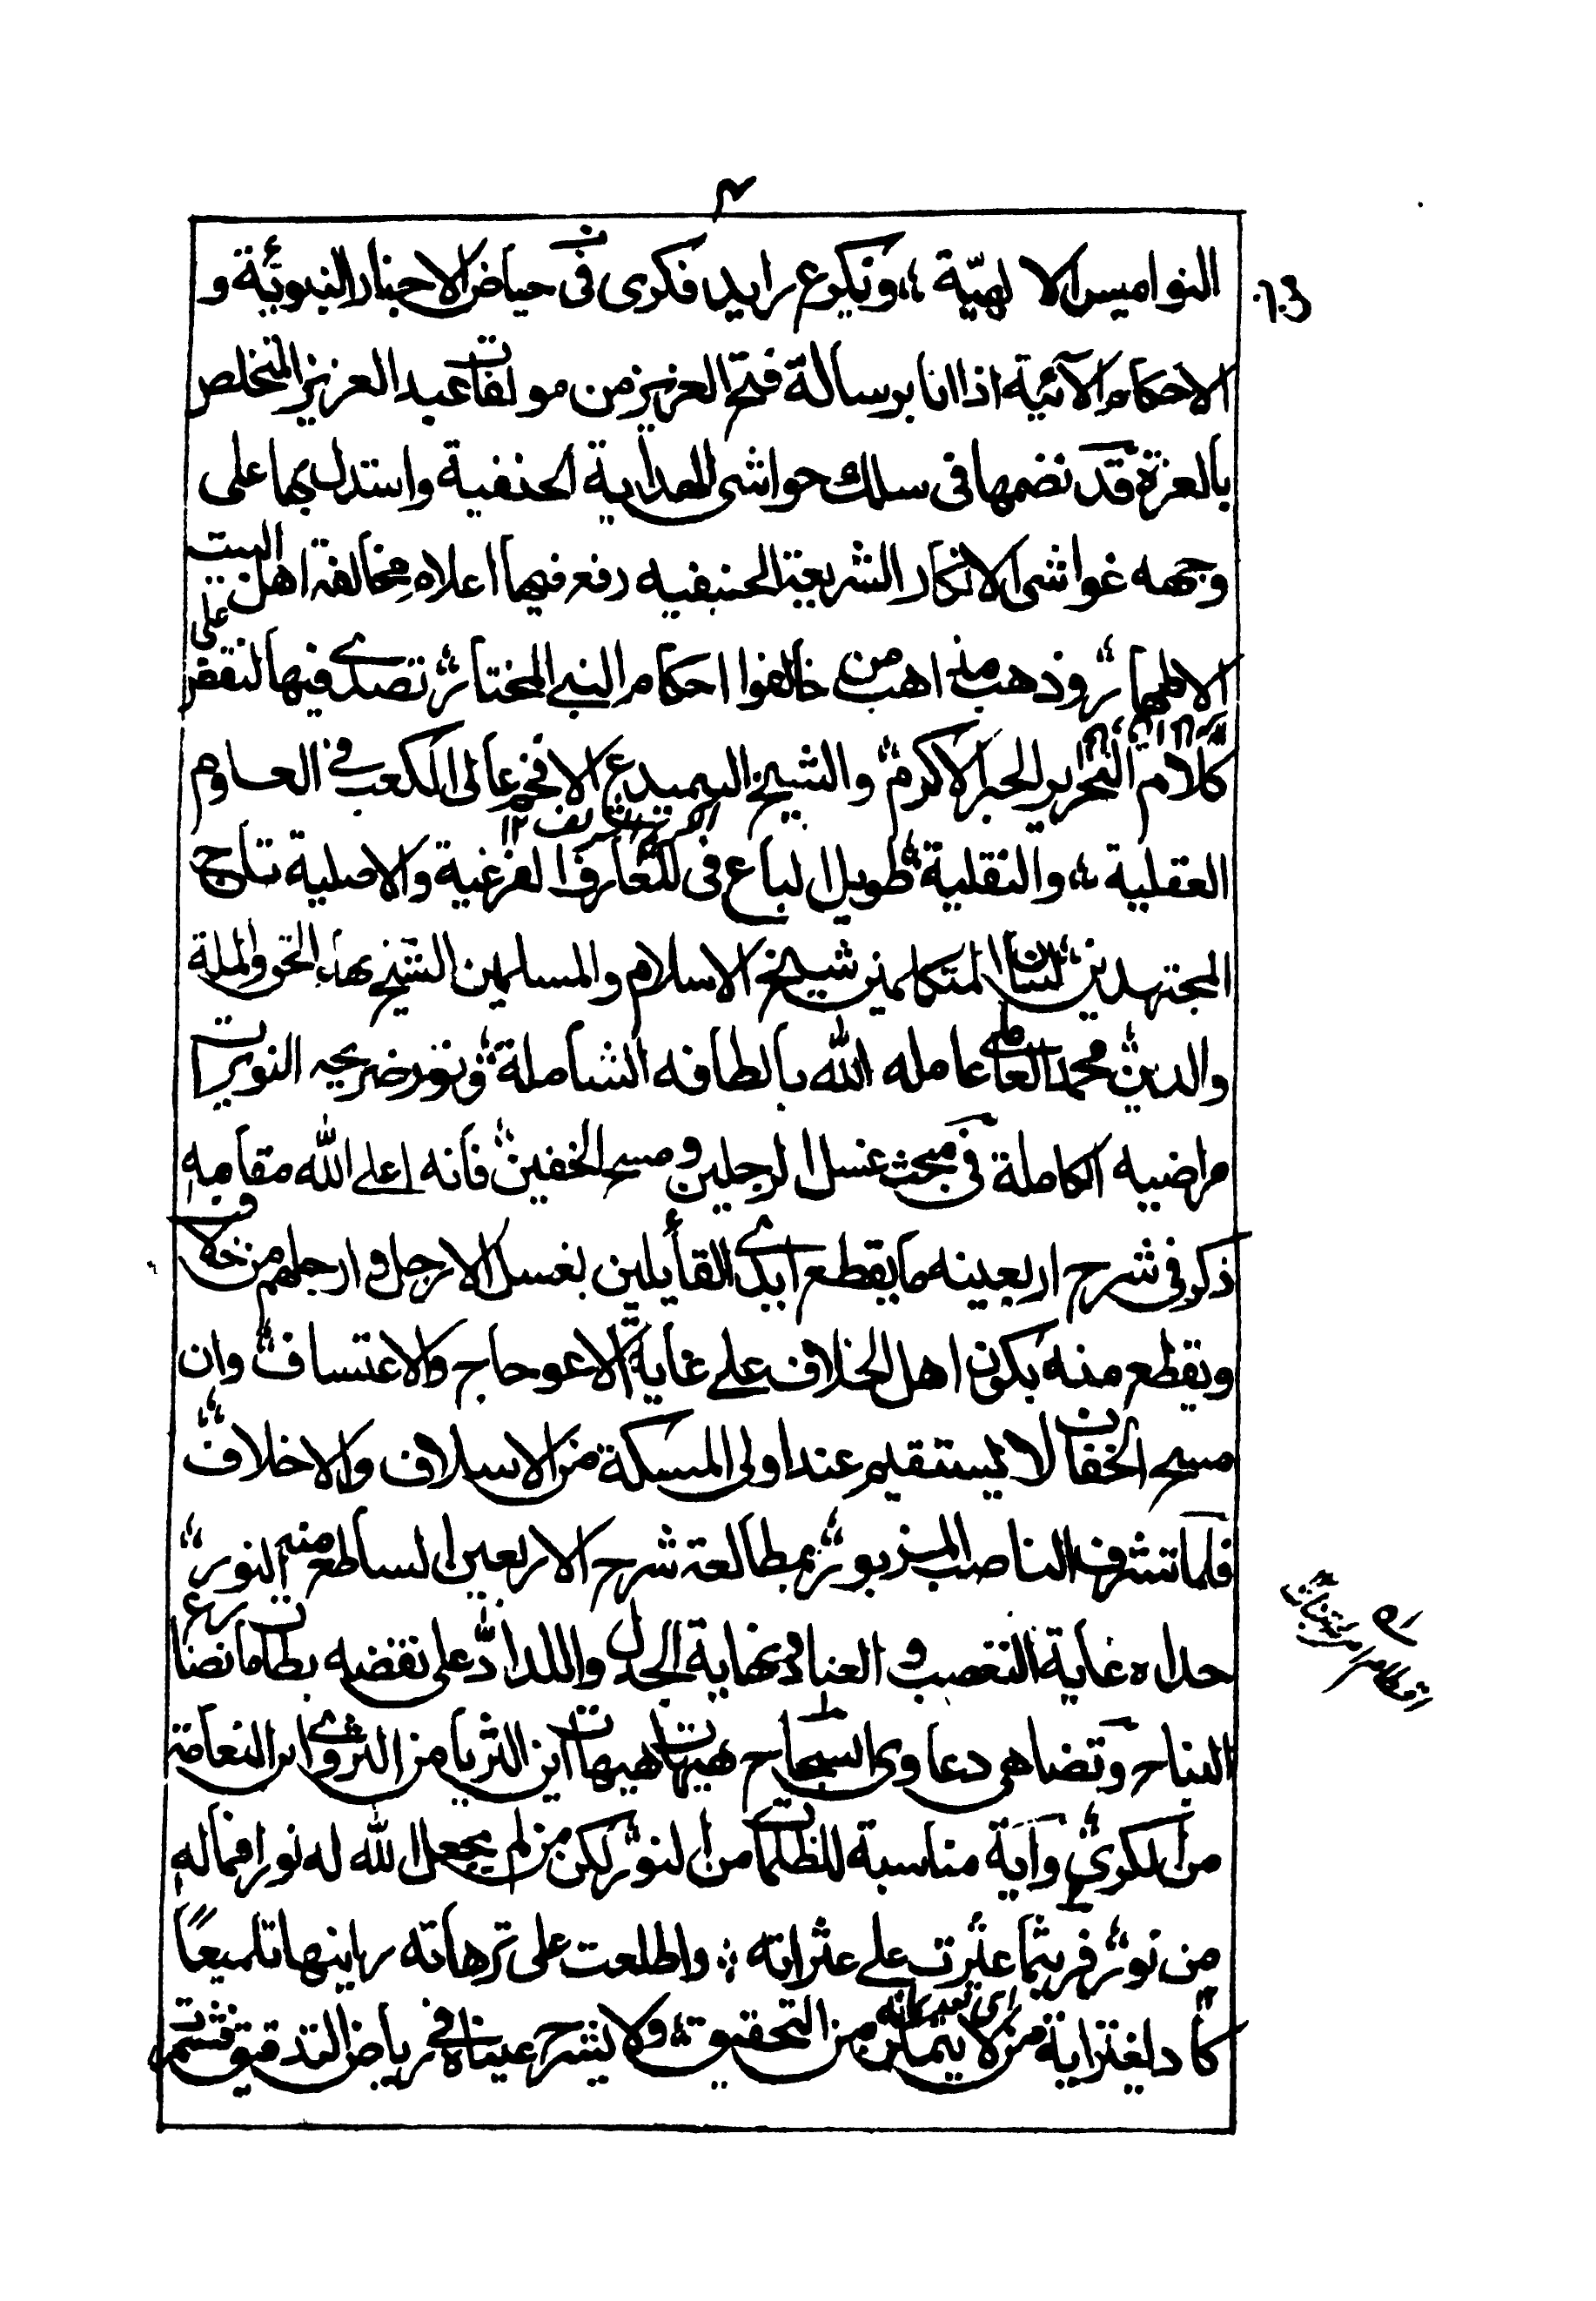 ٣
النواميس الالهيّة ؛ ويكرع رايد فكرى فى حياض الاخبار النبويّة و
الاحكام الآتية اذا انا برسالة فتح العزيز من مولفات عبد العزيز المتخلص
بالعزة قد نضمها فى سلك حواشى الهداية الحنفية واستدل بها على
وجهه غواشى الانكار الشريعة الحنيفيه رفع فيها اعلام مخالفة اهل البيت
الاطهار وذهب مذاهب من خالفوا احكام النبي المختار تصدى فيها لنقض على
كلام النحرير الحبر الاكرم والشيخ السميدع الافخم عالى الكعب في العلوم
العقلية ؛ والنقلية طويل الباع فى المعارف الفرعية والاصلية تاج
المجتهدين لسان المتكلمين شيخ الاسلام والمسلمين الشيخ بهاء الحق والملة
والدين محمد العاملى عامله الله بالطافه الشاملة ونور ضريحه النويرات
مراضيه الكاملة فى مبحث غسل الرجلين و مسح الخفين فانه اعلى الله مقامه
ذكر فى شرح اربعينه ما يقطع ايدى القائلين بغسل الارجل و ارجلهم من خلاف
ويقطع منه بكون اهل الخلاف على غاية الاعوجاج والاعتساف وان
مسح الخفان لا يستقيم عند اولى المسكة من الاسلاف والاخلاف
فلما تشرف الناصب المزبور بمطالعة شرح الاربعين الساطع منه النور
حداه غاية التعصب و العناد ونهاية الجدل واللداد على نقضه بطامات
النباح وتضاهى دعاوى السجاح هيهات هيهات اين الثريا من الثرى واين النعامة
من الكرى واية مناسبة للظلمات من النور لكن من لم يجعل الله له نورا فما له
من نور فريثما عثرت على عثراته ؛ واطلعت على ترهاته رايتها تلميعًا
كاد لغتراية من لا يتمكن من التحقيق ولا يشرح عيناه في رياض التدقيق فشمرت